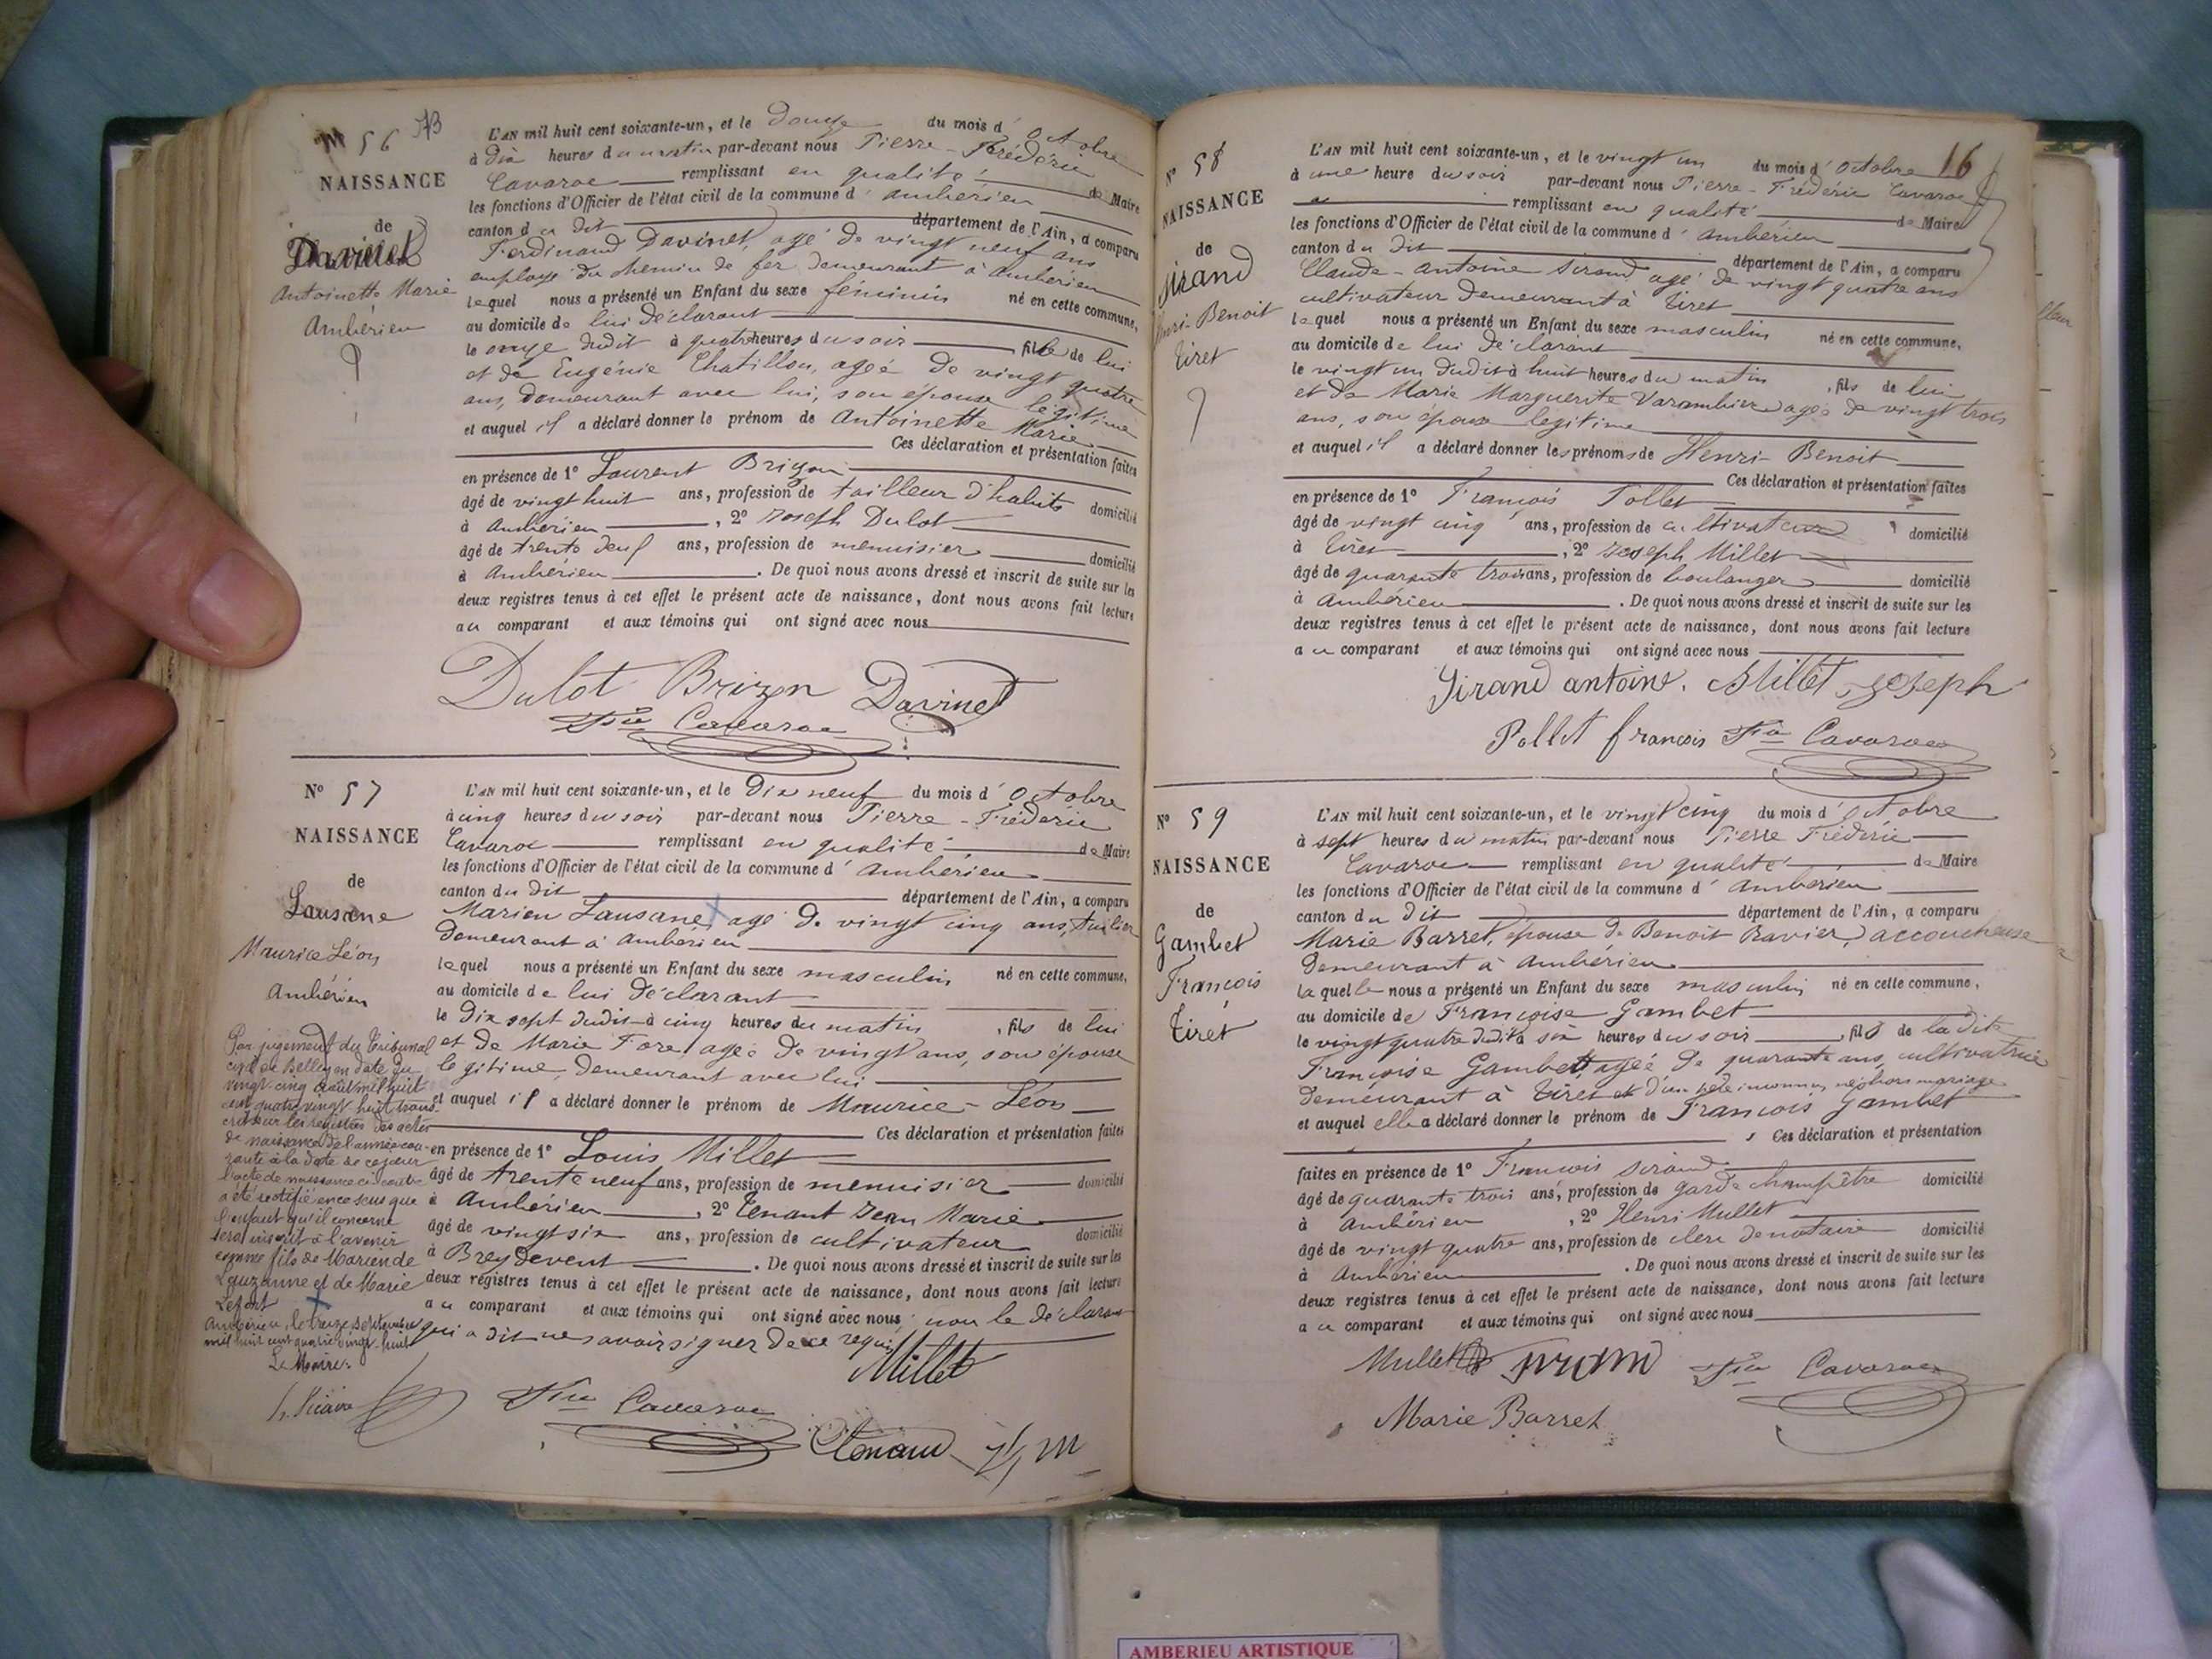 N° 56
NAISSANCE
de
Davinet
Antoinette Marie
Ambérieu
L'AN mil huit cent soixante-un, et le douze du mois d'Octobre
à dix heures du matin par-devant nous Pierre-Frédéric
Cavaroc remplissant en qualité de Maire
les fonctions d'Officier de l'état civil de la commune d'Ambérieu
canton du dit département de l'Ain, a comparu
Ferdinand Davinet, agé de vingt neuf ans
employé du chemin de fer demeurant à Ambérieu
lequel nous a présenté un Enfant du sexe féminin né en cette commune,
au domicile de lui déclarant
le onze dudit à quatre heures du soir fille de lui
et de Eugénie Chatillon, agée de vingt quatre
ans, demeurant avec lui, son épouse légitime
et auquel il a déclaré donner le prénom de Antoinette Marie
Ces déclaration et présentation faites
en présence de 1° Laurent Brizon
âgé de vingt huit ans, profession de tailleur d'habits domicilié
à Ambérieu, 2° Joseph Dulot
âgé de trente neuf ans, profession de menuisier domicilié
à Ambérieu. De quoi nous avons dressé et inscrit de suite sur les
deux registres tenus à cet effet le présent acte de naissance, dont nous avons fait lecture
au comparant et aux témoins qui ont signé avec nous
Dulot Brizon Davinet
Cavaroc
N° 57
NAISSANCE
de
Lausane
Maurice Léon
Ambérieu
Par jugement du Tribunal
civil de Belley en date du
vingt cinq Août mil huit
cent quatre vingt huit trans-
crit sur les registres des actes
de naissance de l'année cou-
rante à la date de ce jour
l'acte de naissance ci-contre
a été rectifié en ce sens que
l'enfant qu'il concerne
sera inscrit à l'avenir
comme fils de Marien de
Lauzanne et de Marie
Lefort
Ambérieu, le treize septembre
mil huit cent quatre vingt huit
Le Maire:
L'AN mil huit cent soixante-un, et le dix neuf du mois d'Octobre
à cinq heures du soir par-devant nous Pierre-Frédéric
Cavaroc remplissant en qualité de Maire
les fonctions d'Officier de l'état civil de la commune d'Ambérieu
canton du dit département de l'Ain, a comparu
Marien Lausane agé de vingt cinq ans, tuilier
demeurant à Ambérieu
lequel nous a présenté un Enfant du sexe masculin né en cette commune,
au domicile de lui déclarant
le dix sept dudit à cinq heures du matin, fils de lui
et de Marie Fore agée de vingt ans, son épouse
légitime, demeurant avec lui
et auquel il a déclaré donner le prénom de Maurice-Léon
Ces déclaration et présentation faites
en présence de 1° Louis Millet
âgé de trente neuf ans, profession de menuisier domicilié
à Ambérieu, 2° Tenant Jean Marie
âgé de vingt six ans, profession de cultivateur domicilié
à Breydevent. De quoi nous avons dressé et inscrit de suite sur les
deux registres tenus à cet effet le présent acte de naissance, dont nous avons fait lecture
au comparant et aux témoins qui ont signé avec nous, non le déclarant
qui a dit ne savoir signer de ce requis
Millet
Cavaroc
Tenant J, M
16
N° 58
NAISSANCE
de
Sirand
Henri-Benoit
Tiret
L'AN mil huit cent soixante-un, et le vingt un du mois d'Octobre
à une heure du soir par-devant nous Pierre-Frédéric Cavaroc
remplissant en qualité de Maire
les fonctions d'Officier de l'état civil de la commune d'Ambérieu
canton du dit département de l'Ain, a comparu
Claude-Antoine Sirand agé de vingt quatre ans
cultivateur demeurant à Tiret
lequel nous a présenté un Enfant du sexe masculin né en cette commune,
au domicile de lui déclarant
le vingt un dudit à huit heures du matin, fils de lui
et de Marie Marguerite Varambier agée de vingt trois
ans, son épouse légitime
et auquel il a déclaré donner les prénoms de Henri-Benoit
Ces déclaration et présentation faites
en présence de 1° François Pollet
âgé de vingt cinq ans, profession de cultivateur domicilié
à Tiret, 2° Joseph Millet
âgé de quarante trois ans, profession de boulanger domicilié
à Ambérieu. De quoi nous avons dressé et inscrit de suite sur les
deux registres tenus à cet effet le présent acte de naissance, dont nous avons fait lecture
au comparant et aux témoins qui ont signé avec nous
Sirand antoine. Millet Joseph
Pollet françois Cavaroc
N° 59
NAISSANCE
de
Gambet
François
Tiret
L'AN mil huit cent soixante-un, et le vingt cinq du mois d'Octobre
à sept heures du matin par-devant nous Pierre Frédéric
Cavaroc remplissant en qualité de Maire
les fonctions d'Officier de l'état civil de la commune d'Ambérieu
canton du dit département de l'Ain, a comparu
Marie Barret, épouse de Benoit Ravier, accoucheuse
demeurant à Ambérieu
laquelle nous a présenté un Enfant du sexe masculin né en cette commune,
au domicile de Françoise Gambet
le vingt quatre dudit à six heures du soir, fils de la dite
Françoise Gambet agée de quarante ans, cultivatrice
demeurant à Tiret et d'un père inconnu, né hors mariage
et auquel elle a déclaré donner le prénom de François Gambet
Ces déclaration et présentation
faites en présence de 1° François Sirand
âgé de quarante trois ans, profession de garde champêtre domicilié
à Ambérieu, 2° Henri Mullet
âgé de vingt quatre ans, profession de clerc de notaire domicilié
à Ambérieu. De quoi nous avons dressé et inscrit de suite sur les
deux registres tenus à cet effet le présent acte de naissance, dont nous avons fait lecture
au comparant et aux témoins qui ont signé avec nous
Mullet Sirand Cavaroc
Marie Barret
AMBERIEU ARTISTIQUE